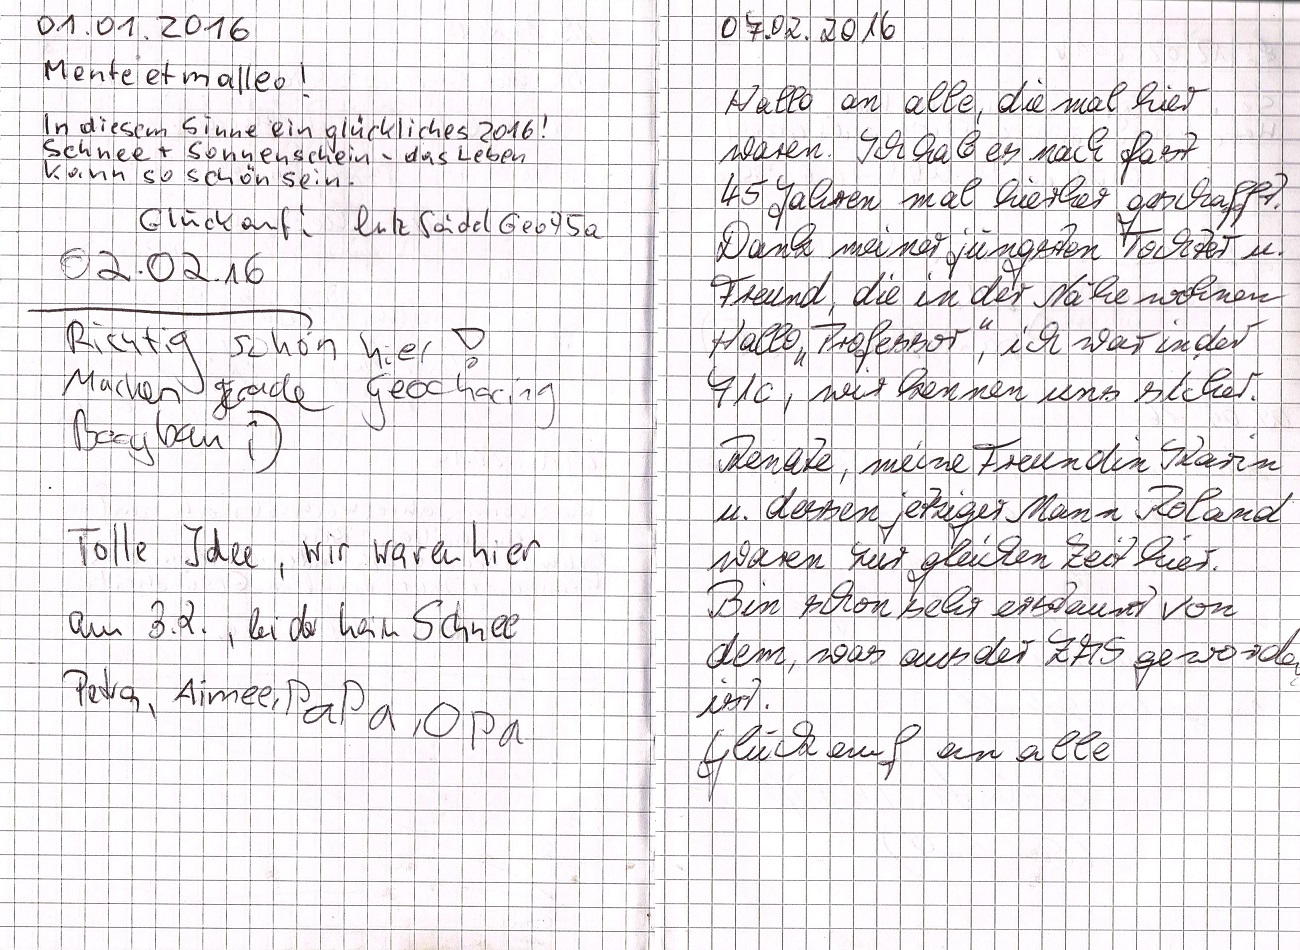 01.01.2016
Mente et malleo!
In diesem Sinne ein glückliches 2016!
Schnee + Sonnenschein - das Leben
kann so schön sein.
Glück auf! Lutz Seidel Geo75a
02.02.16
Richtig schön hier!
Machen grade Geochacing
:)
Tolle Idee, wir waren hier
am 3.2., leider kein Schnee
Petra, Aimee, PaPa, Opa
07.02.2016
Hallo an alle, die mal hier
waren. Ich hab es nach fast
45 Jahren mal hierher geschafft.
Dank meiner jüngsten Tochter u.
Freund, die in der Nähe wohnen
Hallo „Professor“, ich war in der
71c, wir kennen uns sicher.
Renate, meine Freundin Karin
u. dessen jetziger Mann Roland
waren zur gleichen Zeit hier.
Bin schon sehr erstaunt von
dem, was aus der ZAS geworden
ist.
Glück auf an alle